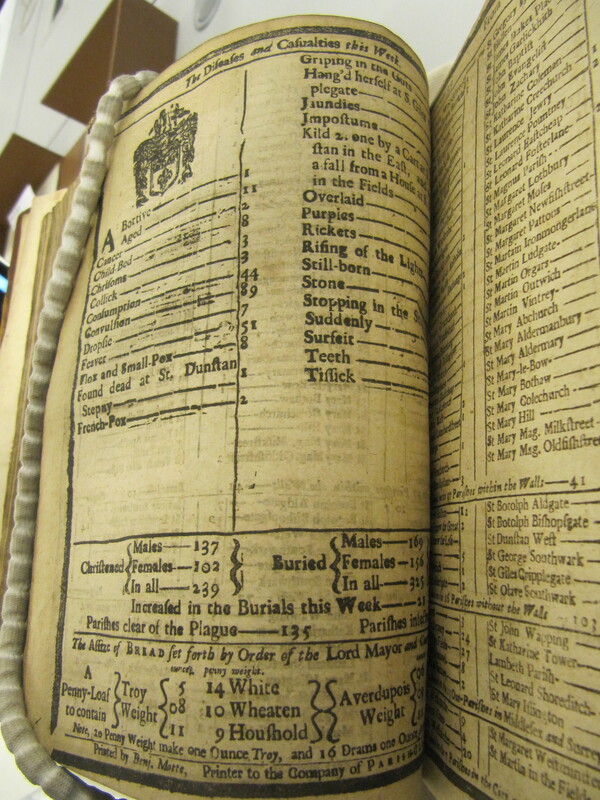 The Diſeaſes and Caſualties this Week
ABortive 1
Aged 11
Cancer 2
Child-Bed 8
Chriſoms 3
Collick 3
Conſumption 44
Convulſion 89
Dropſie 7
Feaver 51
Flox and Small-Pox 8
Found dead at St. Dunſtan
Stepny 1
French-Pox 2
Griping in the Guts
Hang'd herſelf at S.
plegate
Jaundies
Impoſtume
Kild 2. one by a
ſtan in the Eaſt, and
a fall from a Houſe at
in the Fields
Overlaid
Purples
Rickets
Riſing of the Lights
Still-born
Stone
Stopping in the
Suddenly
Surfeit
Teeth
Tiſſick
Chriſtened
Males 137
Females 102
In all 239
Buried
Males 169
Females 156
In all 325
Increaſed in the Burials this Week
Pariſhes clear of the Plague 135 Pariſhes
The Aſſize of BREAD ſet forth by Order of the Lord Mayor and
A Penny-Loaf to contain
Troy Weight
5 14 White
08 10 Wheaten
11 9 Houſhold
Averdupois Weight
Note, 20 Penny Weight make one Ounce Troy, and 16 Drams one Ounce
Printed by Benj. Motte, Printer to the Company of
St John Zachary
St Katharine Coleman
St Katharine Creechurch
St Lawrence Jewry
St Lawrence Pountney
St Leonard Eaſtcheap
St Leonard Foſterlane
St Magnus Pariſh
St Margaret Lothbury
St Margaret Moſes
St Margaret Newfiſhſtreet
St Margaret Pattons
St Martin Ironmongerlane
St Martin Ludgate
St Martin Orgars
St Martin Outwich
St Martin Vintrey
St Mary Abchurch
St Mary Aldermanbury
St Mary Aldermary
St Mary-le-Bow
St Mary Bothaw
St Mary Colechurch
St Mary Hill
St Mary Mag. Milkſtreet
St Mary Mag. Oldfiſhſtreet
Pariſhes within the Walls 41
St Botolph Aldgate
St Botolph Biſhopſgate
St Dunſtan Weſt
St George Southwark
St Giles Cripplegate
St Olave Southwark
Pariſhes without the Walls 103
St John Wapping
St Katharine Tower
Lambeth Pariſh
St Leonard Shoreditch
St Mary Iſlington
Pariſhes in Middleſex and Surrey
St Margaret Weſtminſter
St Martin in the Fields